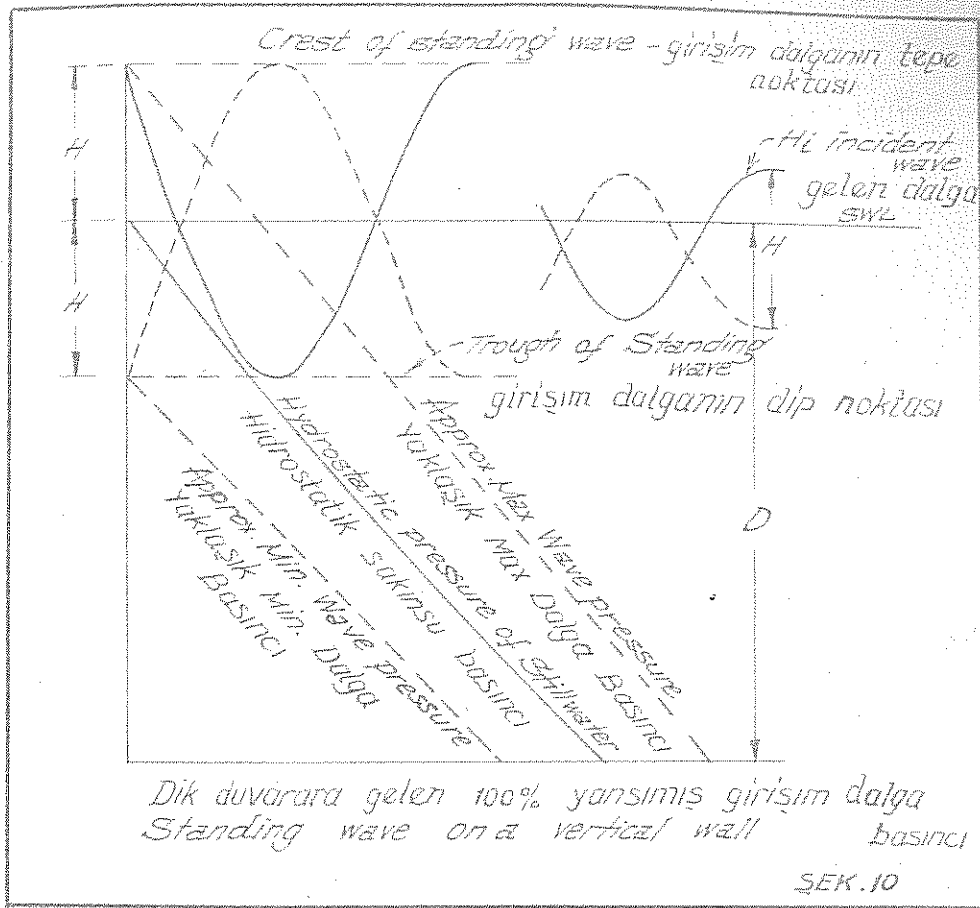 Crest of standing wave - girişim dalganın tepe
noktası
Hi incident
wave
gelen dalga
SWL
H
H
H
Trough of Standing
wave
girişim dalganın dip noktası
Approx Max Wave pressure
Yaklaşık Max Dalga Basıncı
Hydrostatic pressure of stillwater
Hidrostatik sakinsu basıncı
Approx. Min. Wave pressure
Yaklaşık Min. Dalga
Basıncı
D
Dik duvarara gelen 100% yansımış girişim dalga
Standing wave on a vertical wall basıncı
ŞEK.10